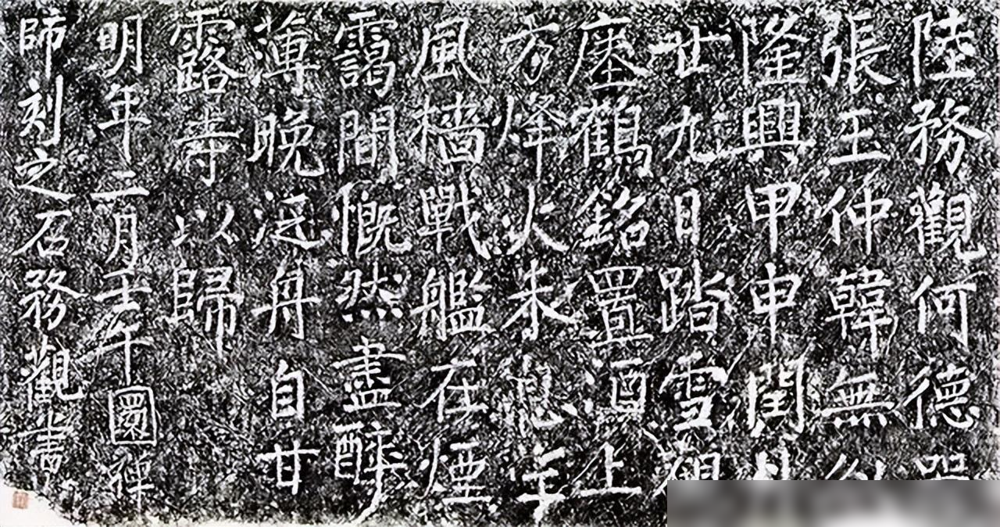 陸務觀何德器
張玉仲韓無
隆興甲申閏
廿九日踏雪觀
瘞鶴銘置酒上
方烽火未息望
風檣戰艦在煙
靄間慨然盡醉
薄晚泛舟自甘
露寺以歸
明年二月壬午圜禪
師刻之石務觀書